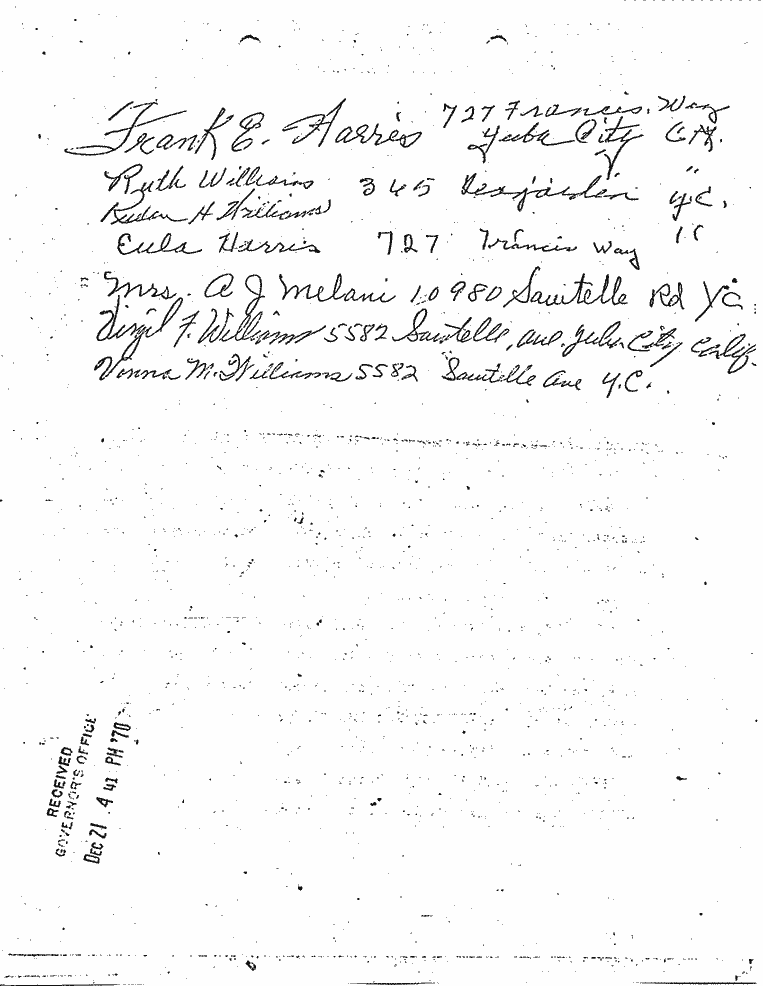 Frank E. Harris 727 Francis. Way
Yuba City CA.
Ruth Williams 345 Desjarden Y.C.
H Williams
Eula Harris 727 Francis Way "
Mrs. A J Melani 10980 Sawtelle Rd YC
Virgil F. Williams 5582 Sawtelle, ave. Yuba City Calif.
Vonna M. Williams 5582 Sawtelle Ave Y.C.
RECEIVED
GOVERNOR'S OFFICE
DEC 21 4 41 PM '70